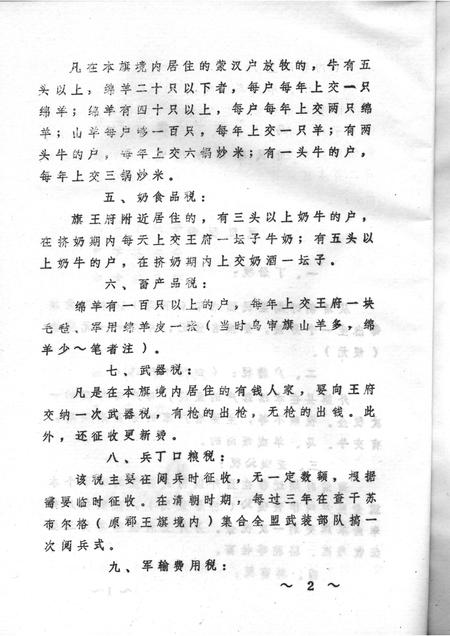 凡在本旗境内居住的蒙汉户放牧的，牛有五
头以上，绵羊二十只以下者，每户每年上交一只
绵羊；绵羊有四十只以上，每户每年上交两只绵
羊；山羊每户够一百只，每年上交一只羊；有两
头牛的户，每年上交六锅炒米；有一头牛的户，
每年上交三锅炒米。
五、奶食品税：
旗王府附近居住的，有三头以上奶牛的户，
在挤奶期内每天上交王府一坛子牛奶；有五头以
上奶牛的户，在挤奶期内上交奶酒一坛子。
六、畜产品税：
绵羊有一百只以上的户，每年上交王府一块
毛毡，军用绵羊皮一张（当时乌审旗山羊多，绵
羊少～笔者注）。
七、武器税：
凡是在本旗境内居住的有钱人家，要向王府
交纳一次武器税，有枪的出枪，无枪的出钱。此
外，还征收更新费。
八、兵丁口粮税：
该税主要在阅兵时征收，无一定数额，根据
需要临时征收。在清朝时期，每过三年在查干苏
布尔格（原郡王旗境内）集合全盟武装部队搞一
次阅兵式。
九、军输费用税：
～2～